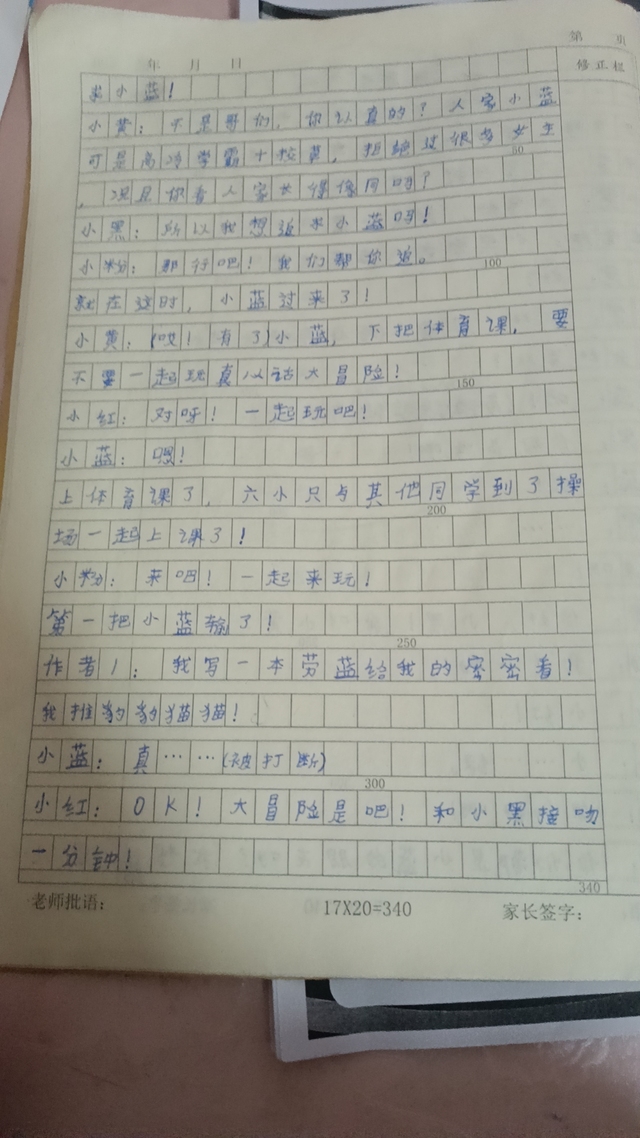 第 页
年 月 日
修正栏
求小蓝！
小黄：不是哥们，你认真的？人家小蓝
可是高冷学霸十校草，拒绝过很多女生
50
，况且你看人家长得像同吗？
小黑：所以我想追求小蓝吗！
小粉：那行吧！我们帮你追。
100
就在这时，小蓝过来了！
小黄：(哎！有了)小蓝，下把体育课，要
不要一起玩真以话大冒险！
150
小红：对呀！一起玩吧！
小蓝：嗯！
上体育课了，六小只与其他同学到了操
200
场一起上课了！
小粉：来吧！一起来玩！
第一把小蓝输了！
250
作者1：我写一本劳蓝给我的密密看！
我推豹豹猫猫！
小蓝：真……(被打断)
300
小红：OK！大冒险是吧！和小黑接吻
一分钟！
340
老师批语：
17X20=340
家长签字：